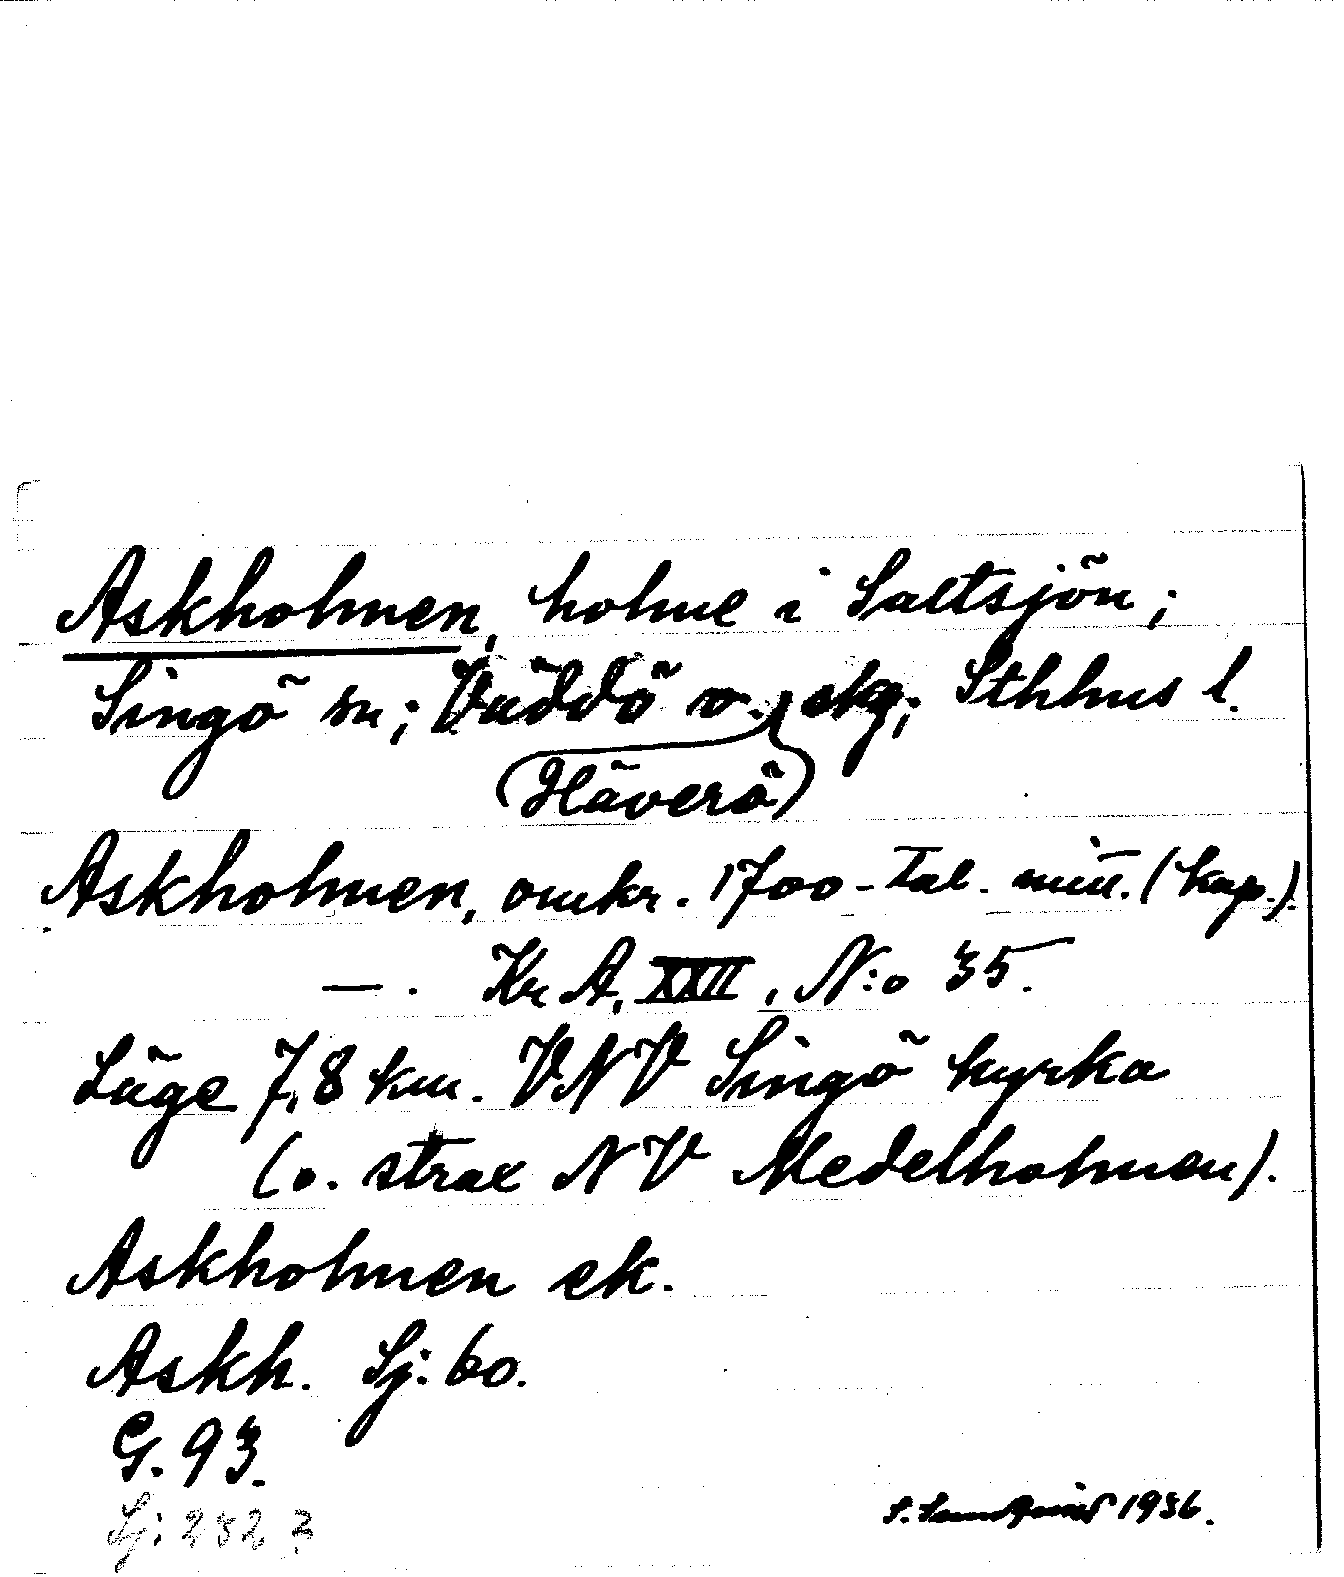 Askholmen, holme i Saltsjön;
Singö sn; Väddö o. skg; Sthlms l.
(Häverö)
Askholmen, omkr. 1700-tal. mitt. (kap.).
—. Kr A, XXII, N:o 35.
Läge 7,8 km. VNV Singö kyrka
(o. strax NV Medelholmen).
Askholmen ek.
Askh. Sj: 60.
G. 93.
Sj: 232
S. 1936.